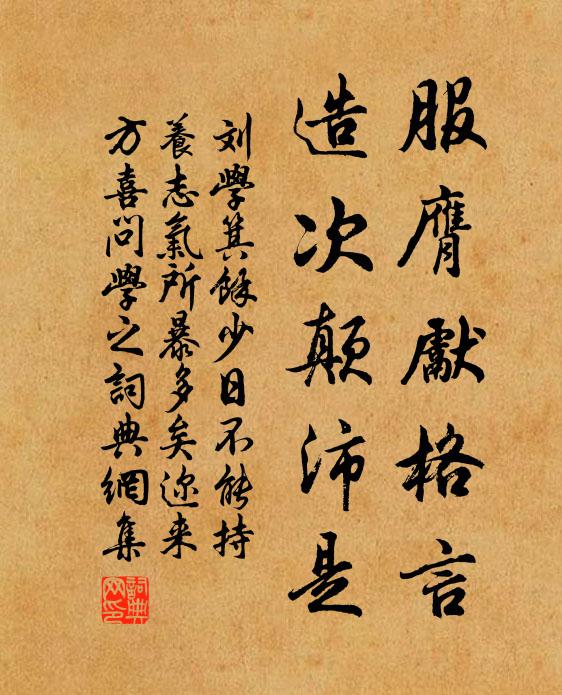 服膺獻格言
造次顛沛是
刘學箕餘少日不能持
養志氣所暴多矣迩来
方喜问學之詞典網集
詞典网印